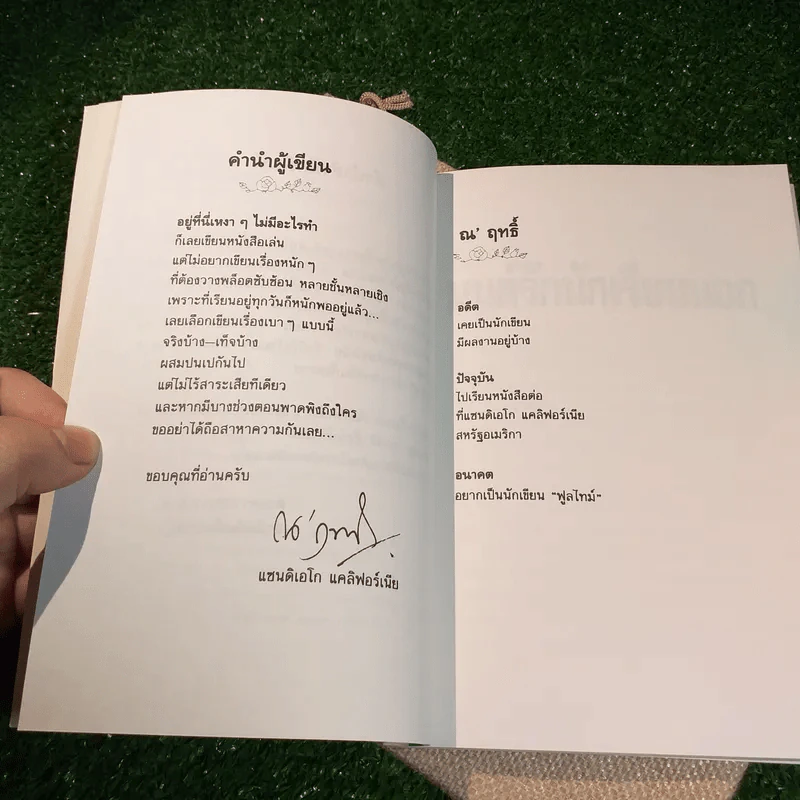 คำนำผู้เขียน
อยู่ที่นี่เหงา ๆ ไม่มีอะไรทำ
ก็เลยเขียนหนังสือเล่น
แต่ไม่อยากเขียนเรื่องหนัก ๆ
ที่ต้องวางพล็อตซับซ้อน หลายชั้นหลายเชิง
เพราะที่เรียนอยู่ทุกวันก็หนักพออยู่แล้ว...
เลยเลือกเขียนเรื่องเบา ๆ แบบนี้
จริงบ้าง—เท็จบ้าง
ผสมปนเปกันไป
แต่ไม่ไร้สาระเสียทีเดียว
และหากมีบางช่วงตอนพาดพิงถึงใคร
ขออย่าได้ถือสาหาความกันเลย...
ขอบคุณที่อ่านครับ
ณ' ฤทธิ์
แซนดิเอโก แคลิฟอร์เนีย
ณ' ฤทธิ์
อดีต
เคยเป็นนักเขียน
มีผลงานอยู่บ้าง
ปัจจุบัน
ไปเรียนหนังสือต่อ
ที่แซนดิเอโก แคลิฟอร์เนีย
สหรัฐอเมริกา
อนาคต
อยากเป็นนักเขียน "ฟูลไทม์"